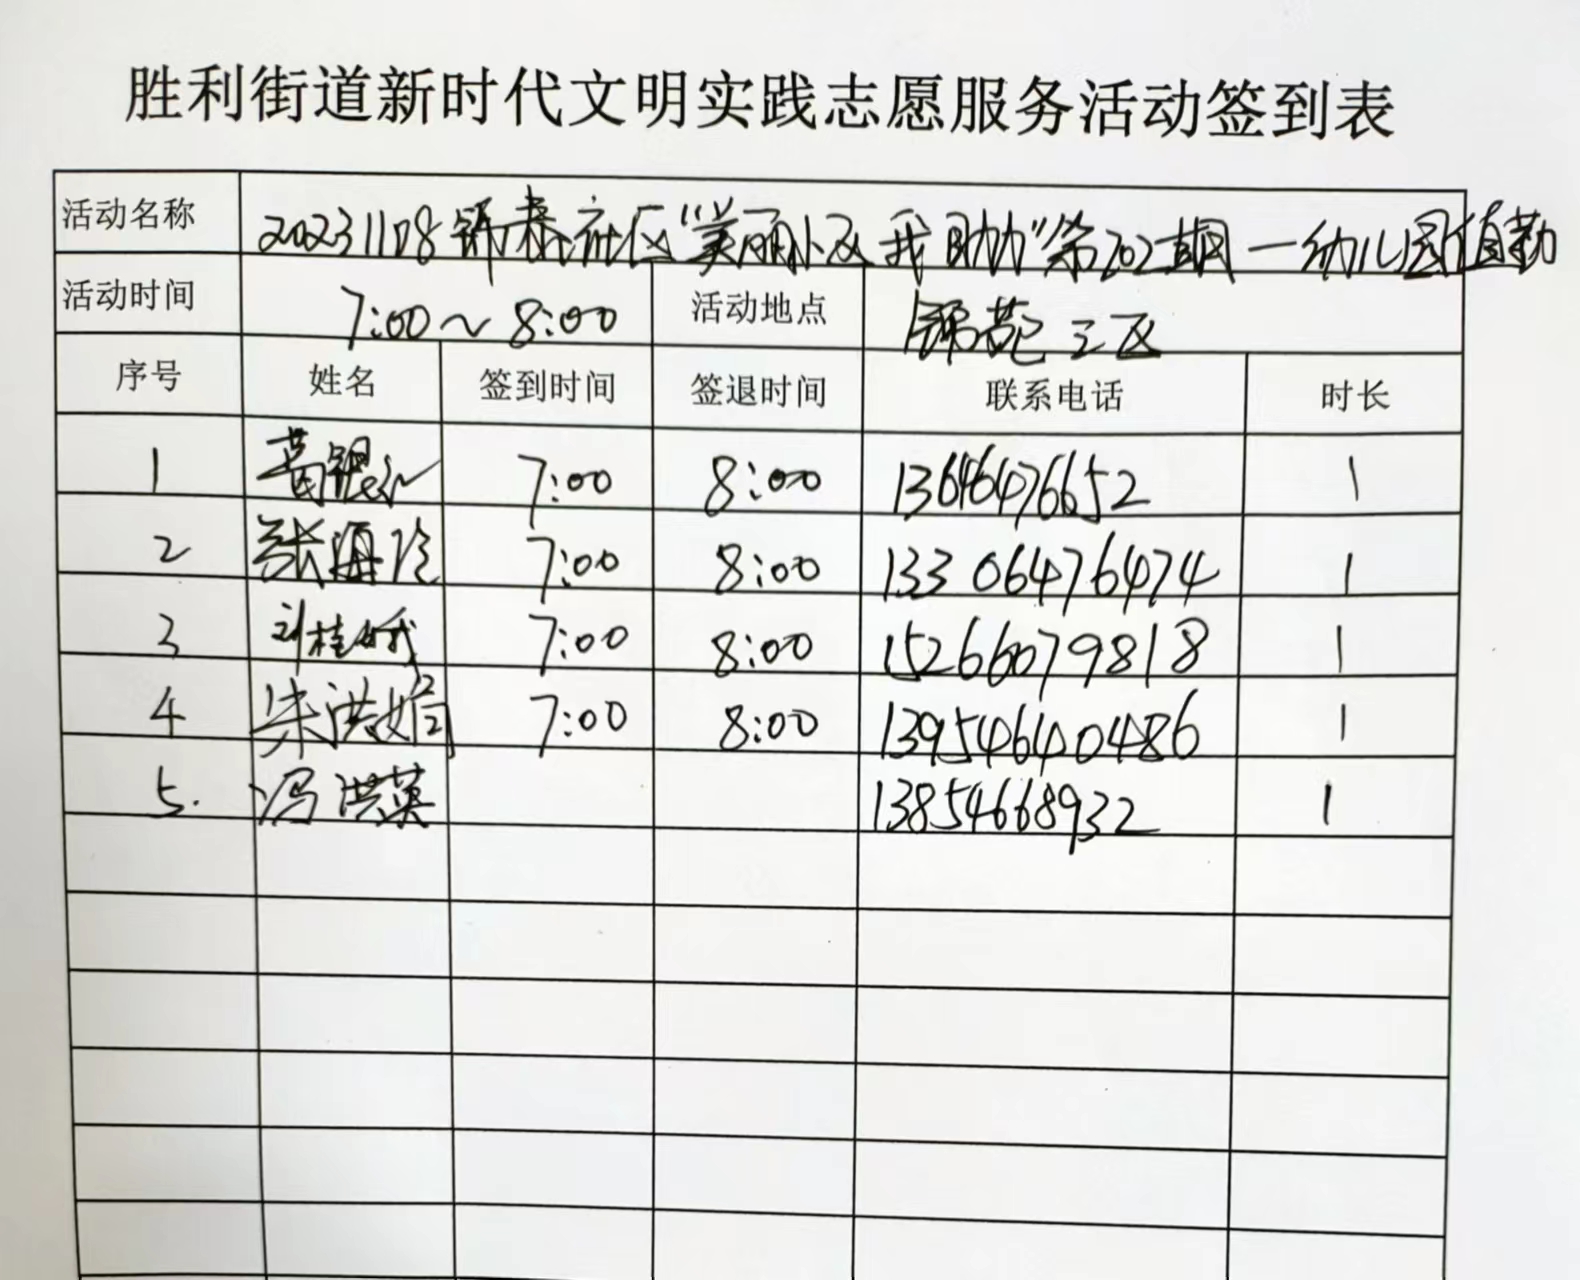 胜利街道新时代文明实践志愿服务活动签到表
活动名称 20231108锦春社区"美丽小区我助力"第202期一幼儿园值勤
活动时间 7:00～8:00 活动地点 锦苑三区
序号 姓名 签到时间 签退时间 联系电话 时长
1 7:00 8:00 13646476652 1
2 张海玲 7:00 8:00 13306476474 1
3 刘桂娥 7:00 8:00 15266079818 1
4 朱洪娟 7:00 8:00 13954640486 1
5. 冯洪英 13854668932 1